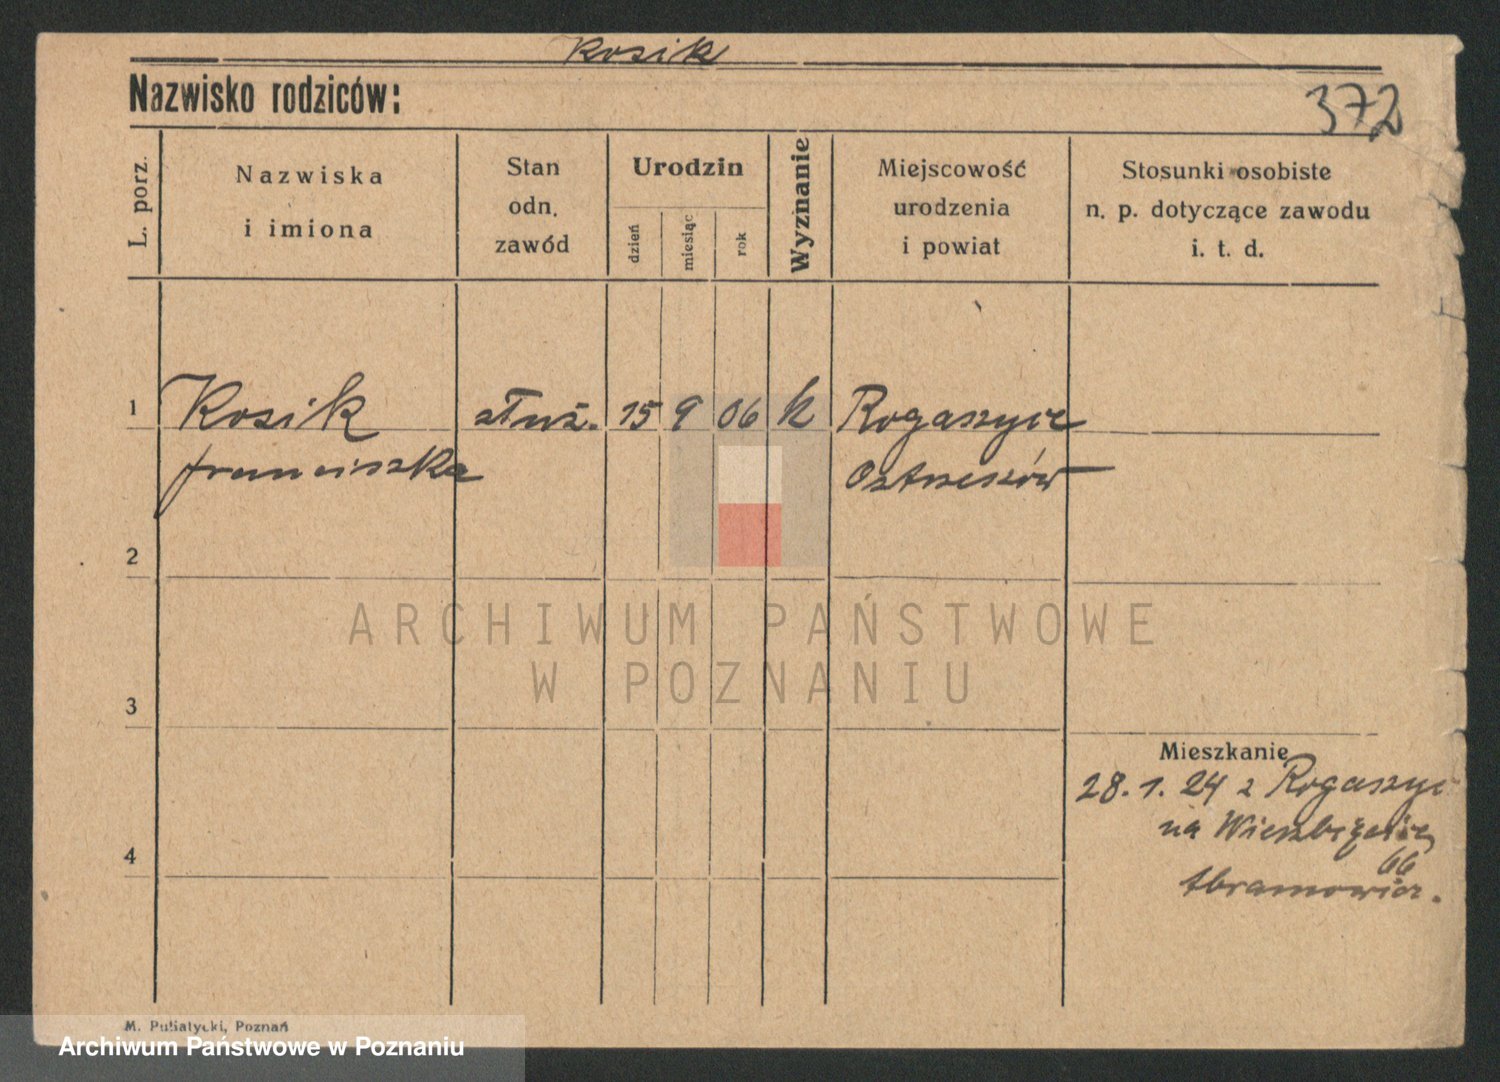 Kosik
Nazwisko rodziców:
372
L. porz.
Nazwiska
i imiona
Stan
odn.
zawód
Urodzin
dzień
miesiąc
rok
Wyznanie
Miejscowość
urodzenia
i powiat
Stosunki osobiste
n. p. dotyczące zawodu
i. t. d.
1 Kosik służ. 15 9 06 k Rogaszyce
Franciszka Ostrzeszów
2
ARCHIWUM PAŃSTWOWE
W POZNANIU
3
Mieszkanie
28. 1. 24 z Rogaszyc
na Wierzbięcice
66
4
Abramowicz.
M. Putiatycki, Poznań
Archiwum Państwowe w Poznaniu